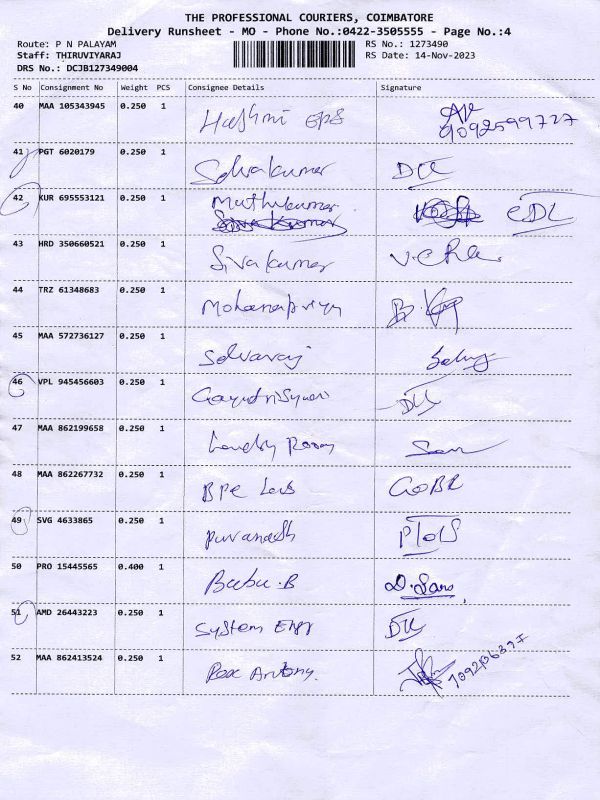 THE PROFESSIONAL COURIERS, COIMBATORE
Delivery Runsheet - MO - Phone No.:0422-3505555 - Page No.:4
Route: P N PALAYAM RS No.: 1273490
Staff: THIRUVIYARAJ RS Date: 14-Nov-2023
DRS No.: DCJB127349004
S No Consignment No Weight PCS Consignee Details Signature
40 MAA 105343945 0.250 1 9092599727
41 PGT 6020179 0.250 1 Selvakumar
42 KUR 695553121 0.250 1 Muthukumar EDL
43 HRD 350660521 0.250 1 Sivakumar
44 TRZ 61348683 0.250 1 Mohanapriya
45 MAA 572736127 0.250 1 Selvaraj
46 VPL 945456603 0.250 1
47 MAA 862199658 0.250 1
48 MAA 862267732 0.250 1
49 SVG 4633865 0.250 1
50 PRO 15445565 0.400 1 Babu.B
51 AMD 26443223 0.250 1 System Engg
52 MAA 862413524 0.250 1 Rex Antony.